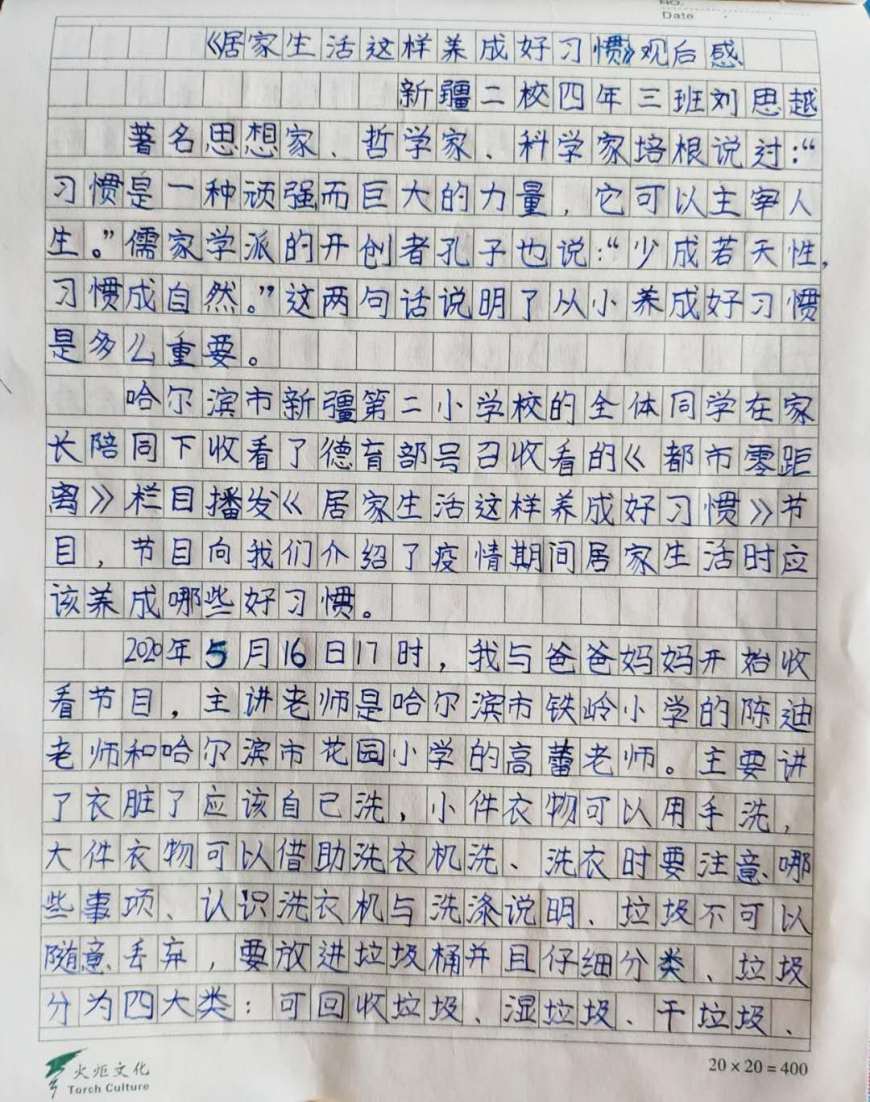 NO.
Date
《居家生活这样养成好习惯》观后感
新疆二校四年三班刘思越
著名思想家、哲学家、科学家培根说过：“
习惯是一种顽强而巨大的力量，它可以主宰人
生。”儒家学派的开创者孔子也说：“少成若天性，
习惯成自然。”这两句话说明了从小养成好习惯
是多么重要。
哈尔滨市新疆第二小学校的全体同学在家
长陪同下收看了德育部号召收看的《都市零距
离》栏目播发《居家生活这样养成好习惯》节
目，节目向我们介绍了疫情期间居家生活时应
该养成哪些好习惯。
2020年5月16日17时，我与爸爸妈妈开始收
看节目，主讲老师是哈尔滨市铁岭小学的陈迪
老师和哈尔滨市花园小学的高蕾老师。主要讲
了衣脏了应该自己洗，小件衣物可以用手洗，
大件衣物可以借助洗衣机洗、洗衣时要注意哪
些事项、认识洗衣机与洗涤说明、垃圾不可以
随意丢弃，要放进垃圾桶并且仔细分类、垃圾
分为四大类：可回收垃圾、湿垃圾、干垃圾、
火炬文化
Torch Culture
20×20=400